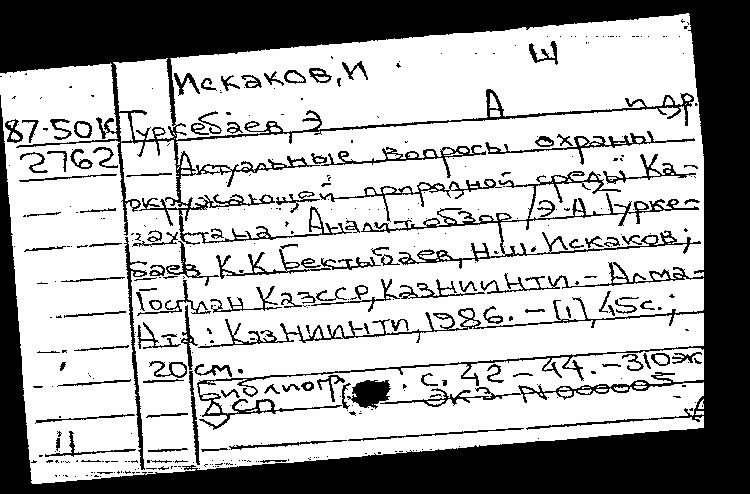 Искаков, И Ш
87-50К Туркебаев, Э А и др.
2762 Актуальные вопросы охраны
окружающей природной среды Ка-
захстана : Аналит. обзор / Э.А. Турке-
баев, К.К. Бектыбаев, Н.Ш. Искаков;
Госплан КазССР, КазНИИНТИ. - Алма-
Ата : КазНИИНТИ, 1986. - [1], 45 с.;
20 см.
Библиогр. : с. 42 - 44. - 310 эк
ДСП. Экз N 00005.
11